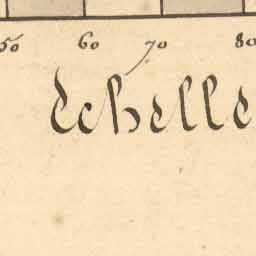 50 60 70 80
Echelle